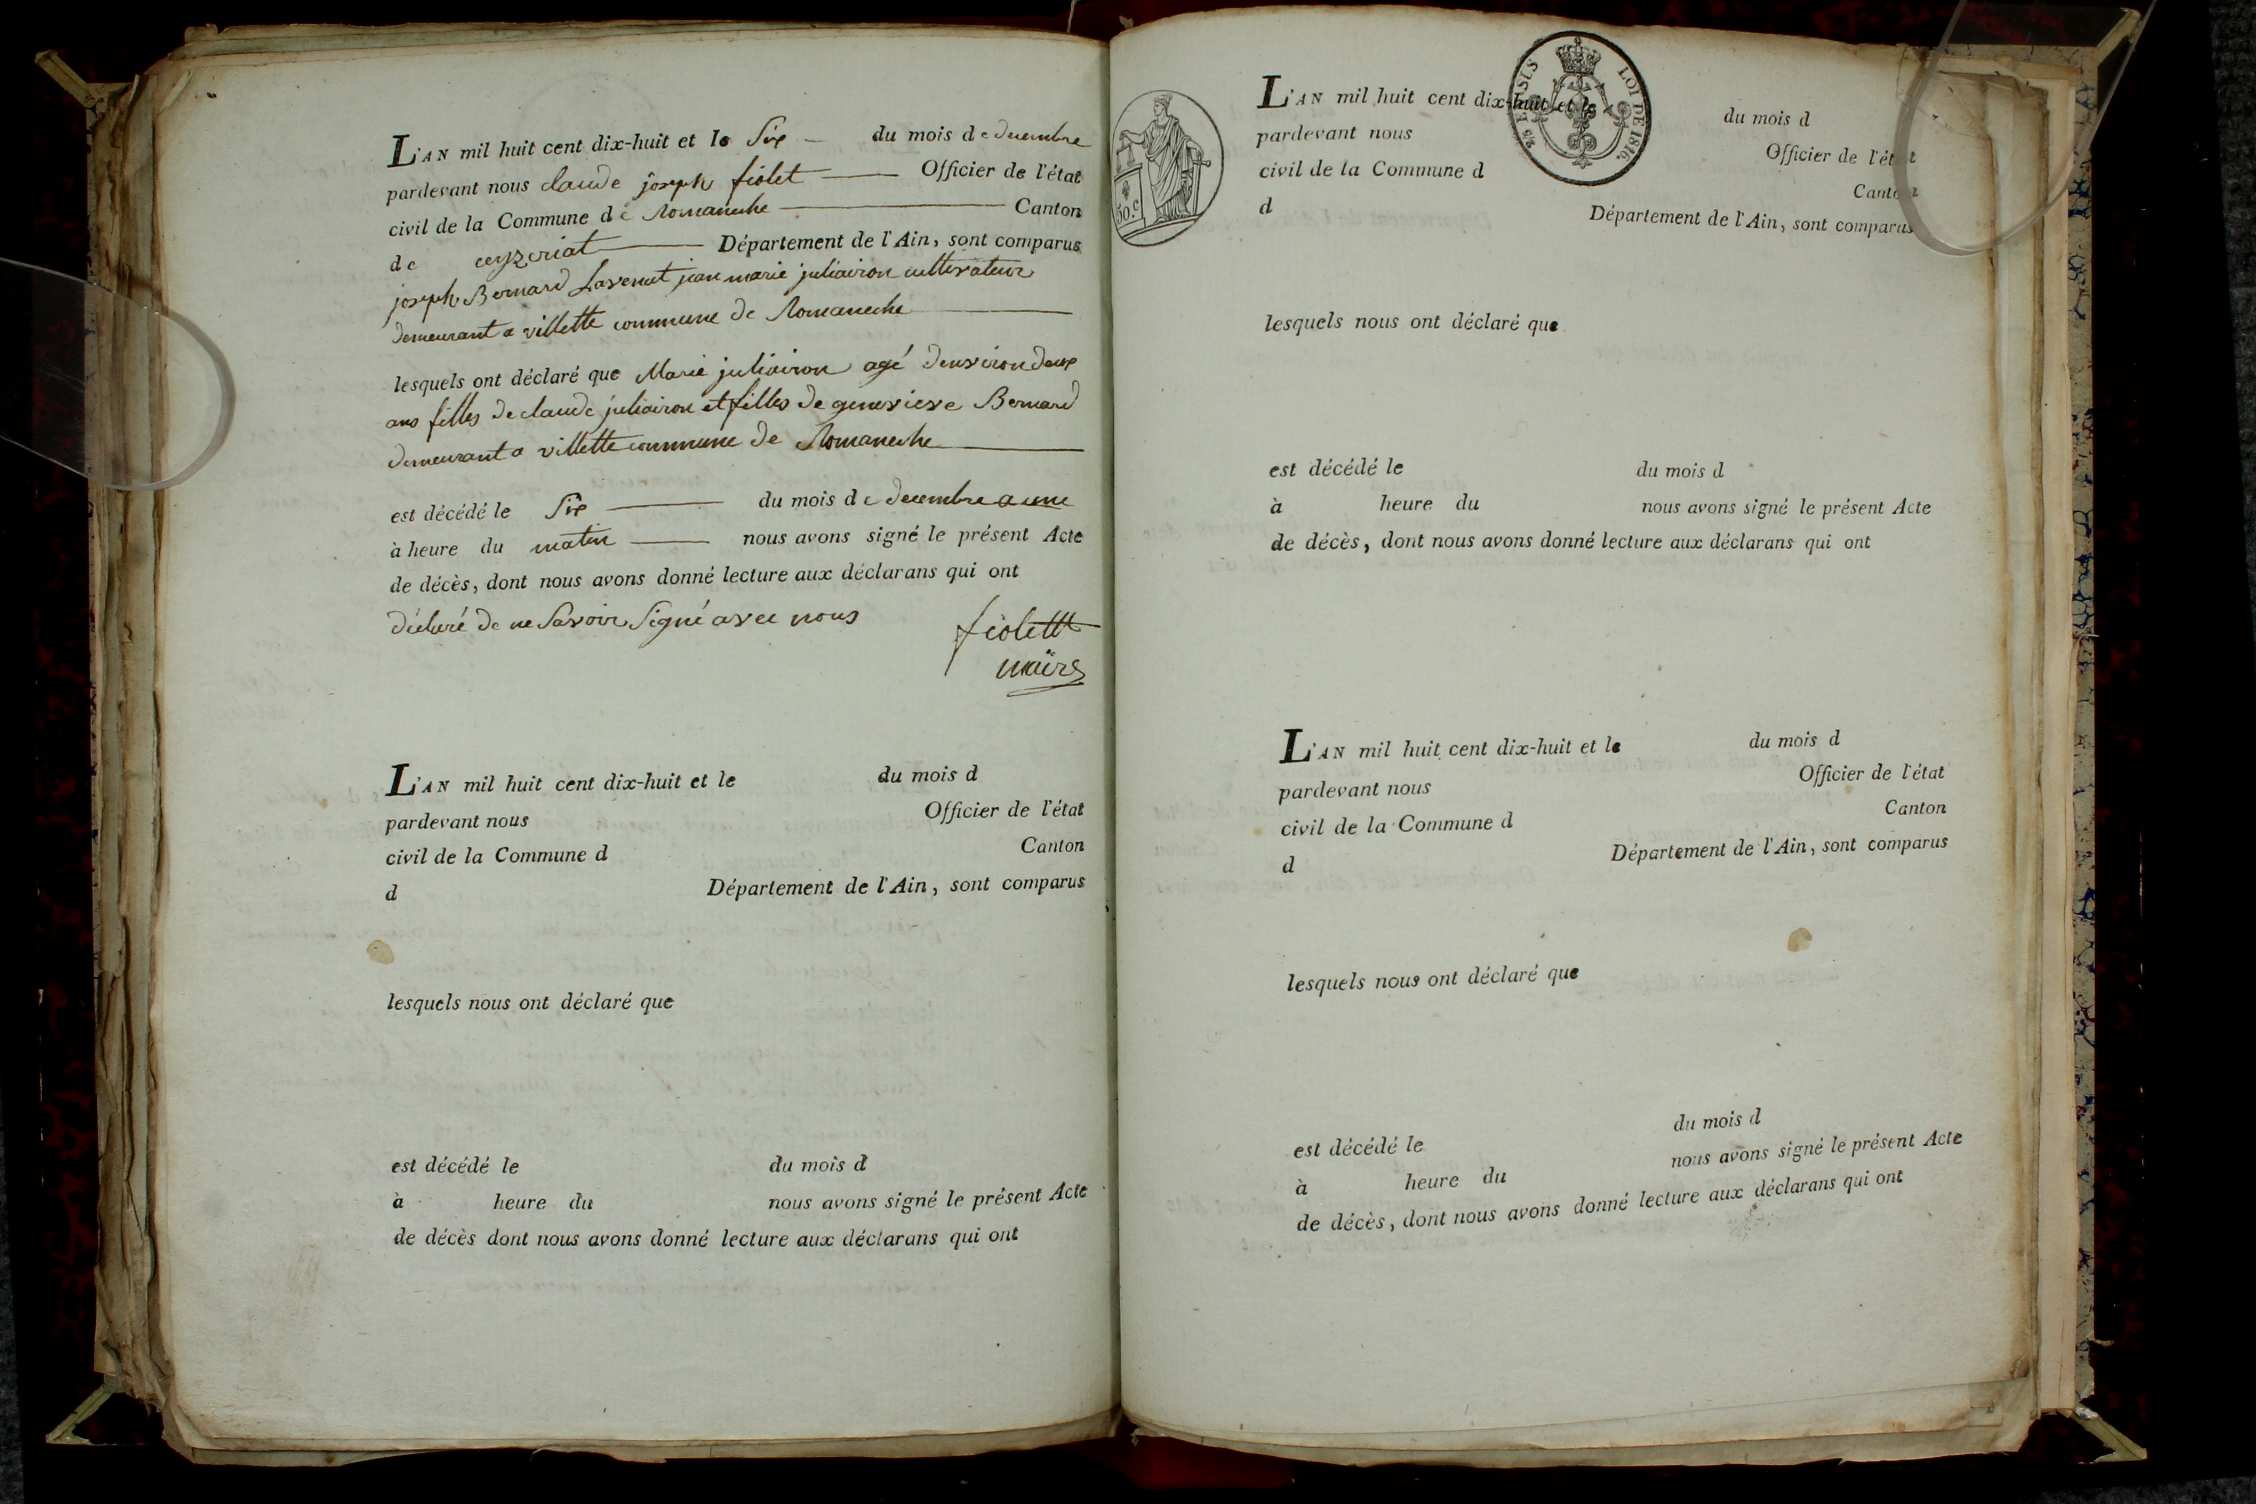 L'AN mil huit cent dix-huit et le Six du mois de decembre
pardevant nous claude joseph fiolet Officier de l'état
civil de la Commune de Romaneche Canton
de ceyzeriat Département de l'Ain, sont comparus
joseph Bernard Lavenut jean marie juliairon cultivateur
demeurant a villette commune de Romaneche
lesquels ont déclaré que Marie juliairon agé denviron deux
ans filles de claude juliairon et filles de genevieve Bernard
demeurant a villette commune de Romaneche
est décédé le Six du mois de decembre a une
à heure du matin nous avons signé le présent Acte
de décès, dont nous avons donné lecture aux déclarans qui ont
déclaré de ne Savoir Signé avec nous
fiolettt
maire
L'AN mil huit cent dix-huit et le du mois d
pardevant nous Officier de l'état
civil de la Commune d Canton
d Département de l'Ain, sont comparus
lesquels nous ont déclaré que
est décédé le du mois d
à heure du nous avons signé le présent Acte
de décès dont nous avons donné lecture aux déclarans qui ont
50.c
25 EN SUS
LOI DE 1816.
L'AN mil huit cent dix-huit et le du mois d
pardevant nous Officier de l'état
civil de la Commune d Canton
d Département de l'Ain, sont comparus
lesquels nous ont déclaré que
est décédé le du mois d
à heure du nous avons signé le présent Acte
de décès, dont nous avons donné lecture aux déclarans qui ont
L'AN mil huit cent dix-huit et le du mois d
pardevant nous Officier de l'état
civil de la Commune d Canton
d Département de l'Ain, sont comparus
lesquels nous ont déclaré que
est décédé le du mois d
à heure du nous avons signé le présent Acte
de décès, dont nous avons donné lecture aux déclarans qui ont